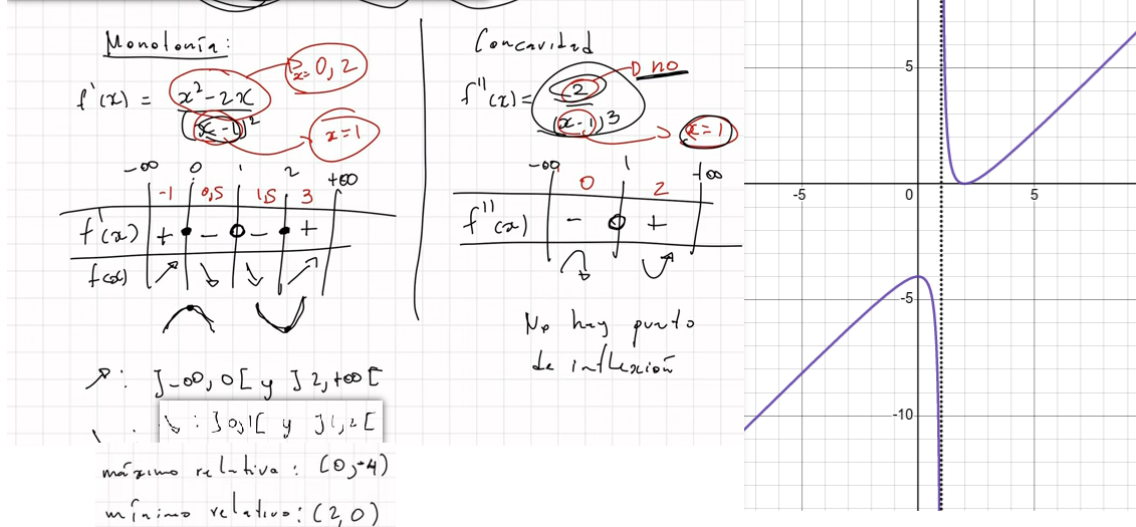 Monotonía:
f'(x) = x²-2x / (x-1)²
x=0,2
x=1
-∞ 0 1 2 +∞
-1 0,5 1,5 3
f'(x) + - - +
f(x) ↗ ↘ ↘ ↗
↗: ]-∞,0[ y ]2,+∞[
↘: ]0,1[ y ]1,2[
máximo relativa: (0,-4)
mínimo relativo: (2,0)
Concavidad
f''(x) = 2 / (x-1)³
no
x=1
-∞ 1 +∞
0 2
f''(x) - +
No hay punto
de inflexión
5
-5 0 5
-5
-10